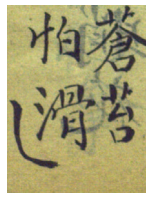 蒼苔
怕滑し